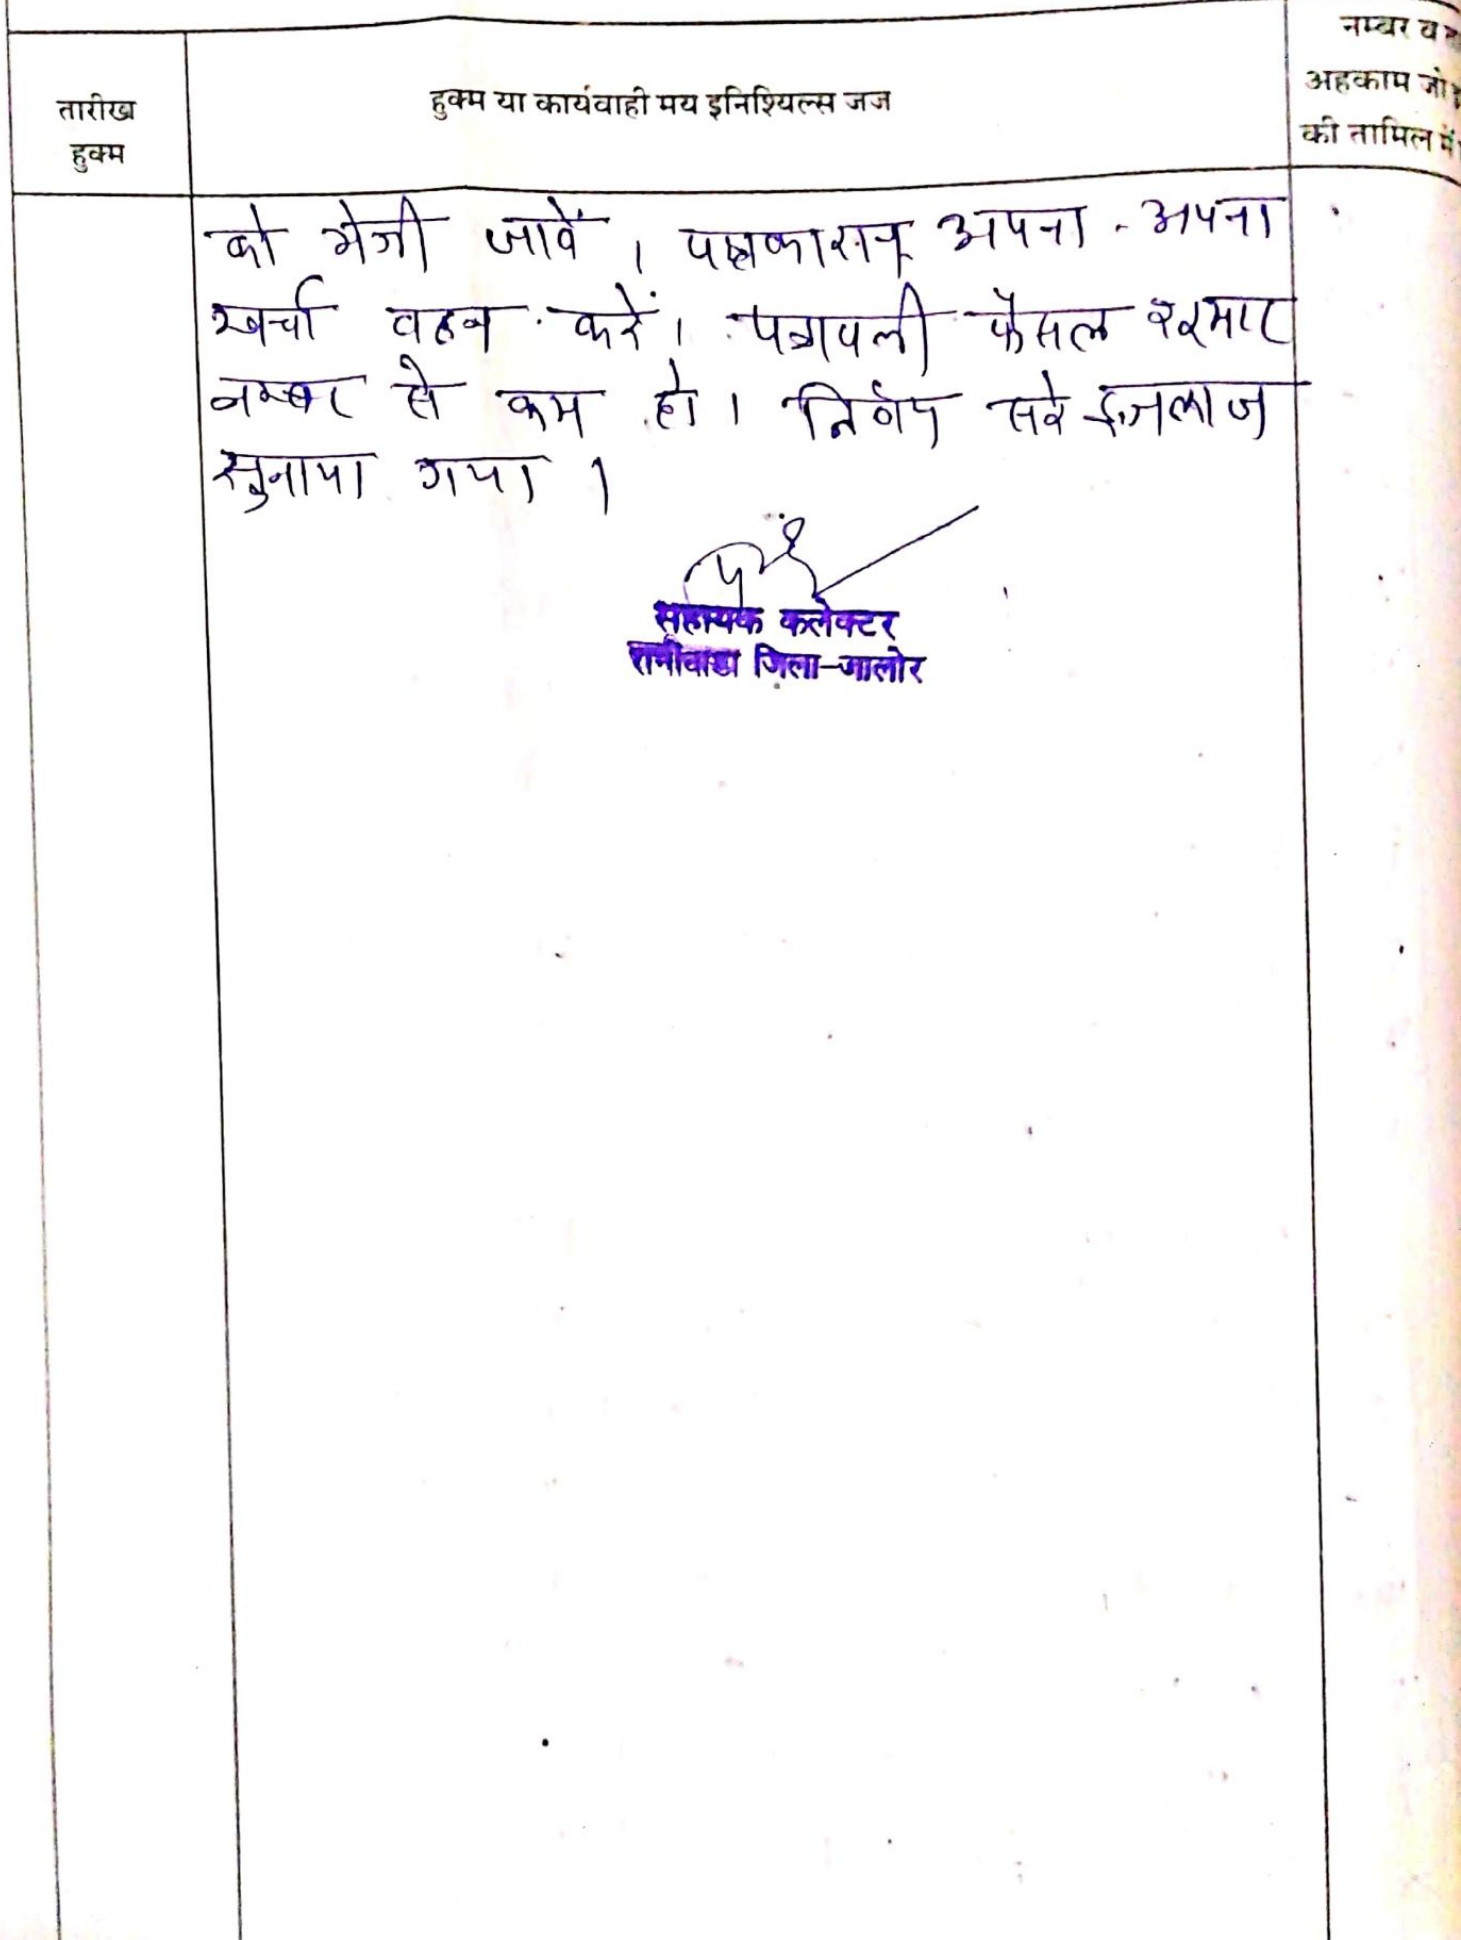 तारीख
हुक्म
हुक्म या कार्यवाही मय इनिश्यिल्स जज
नम्बर व
अहकाम जो
की तामिल में
को भेजी जावें । पक्षकारान् अपना - अपना
खर्चा वहन करें । पत्रावली फैसल शुमार
नम्बर से कम हो । निर्णय सरे इजलाज
सुनाया गया ।
सहायक कलेक्टर
रानीवाडा जिला-जालोर